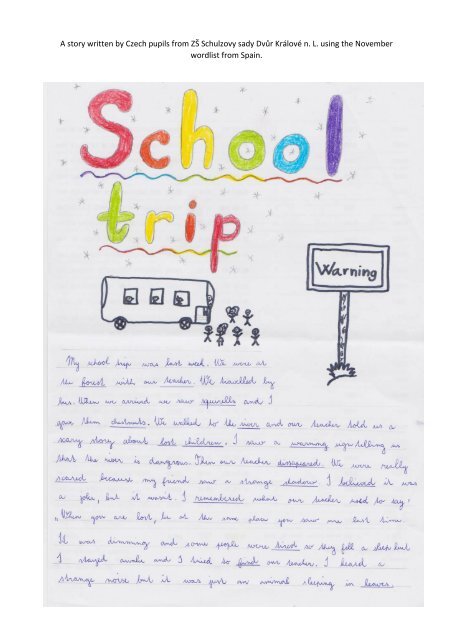 A story written by Czech pupils from ZŠ Schulzovy sady Dvůr Králové n. L. using the November
wordlist from Spain.
School
trip
Warning
My school trip was last week. We were at
the forest with our teacher. We travelled by
bus. When we arrived we saw squirells and I
gave them chestnuts. We walked to the river and our teacher told us a
scary story about lost children. I saw a warning sign telling us
that the river is dangerous. Then our teacher dissapeared. We were really
scared because my friend saw a strange shadow. I believed it was
a joke, but it wasn't. I remembered what our teacher used to say:
„When you are lost, be at the same place you saw me last time.
It was dimming and some people were tired so they fell a sleep but
I stayed awake and I tried to find our teacher. I heard a
strange noise but it was just an animal sleeping in leaves.